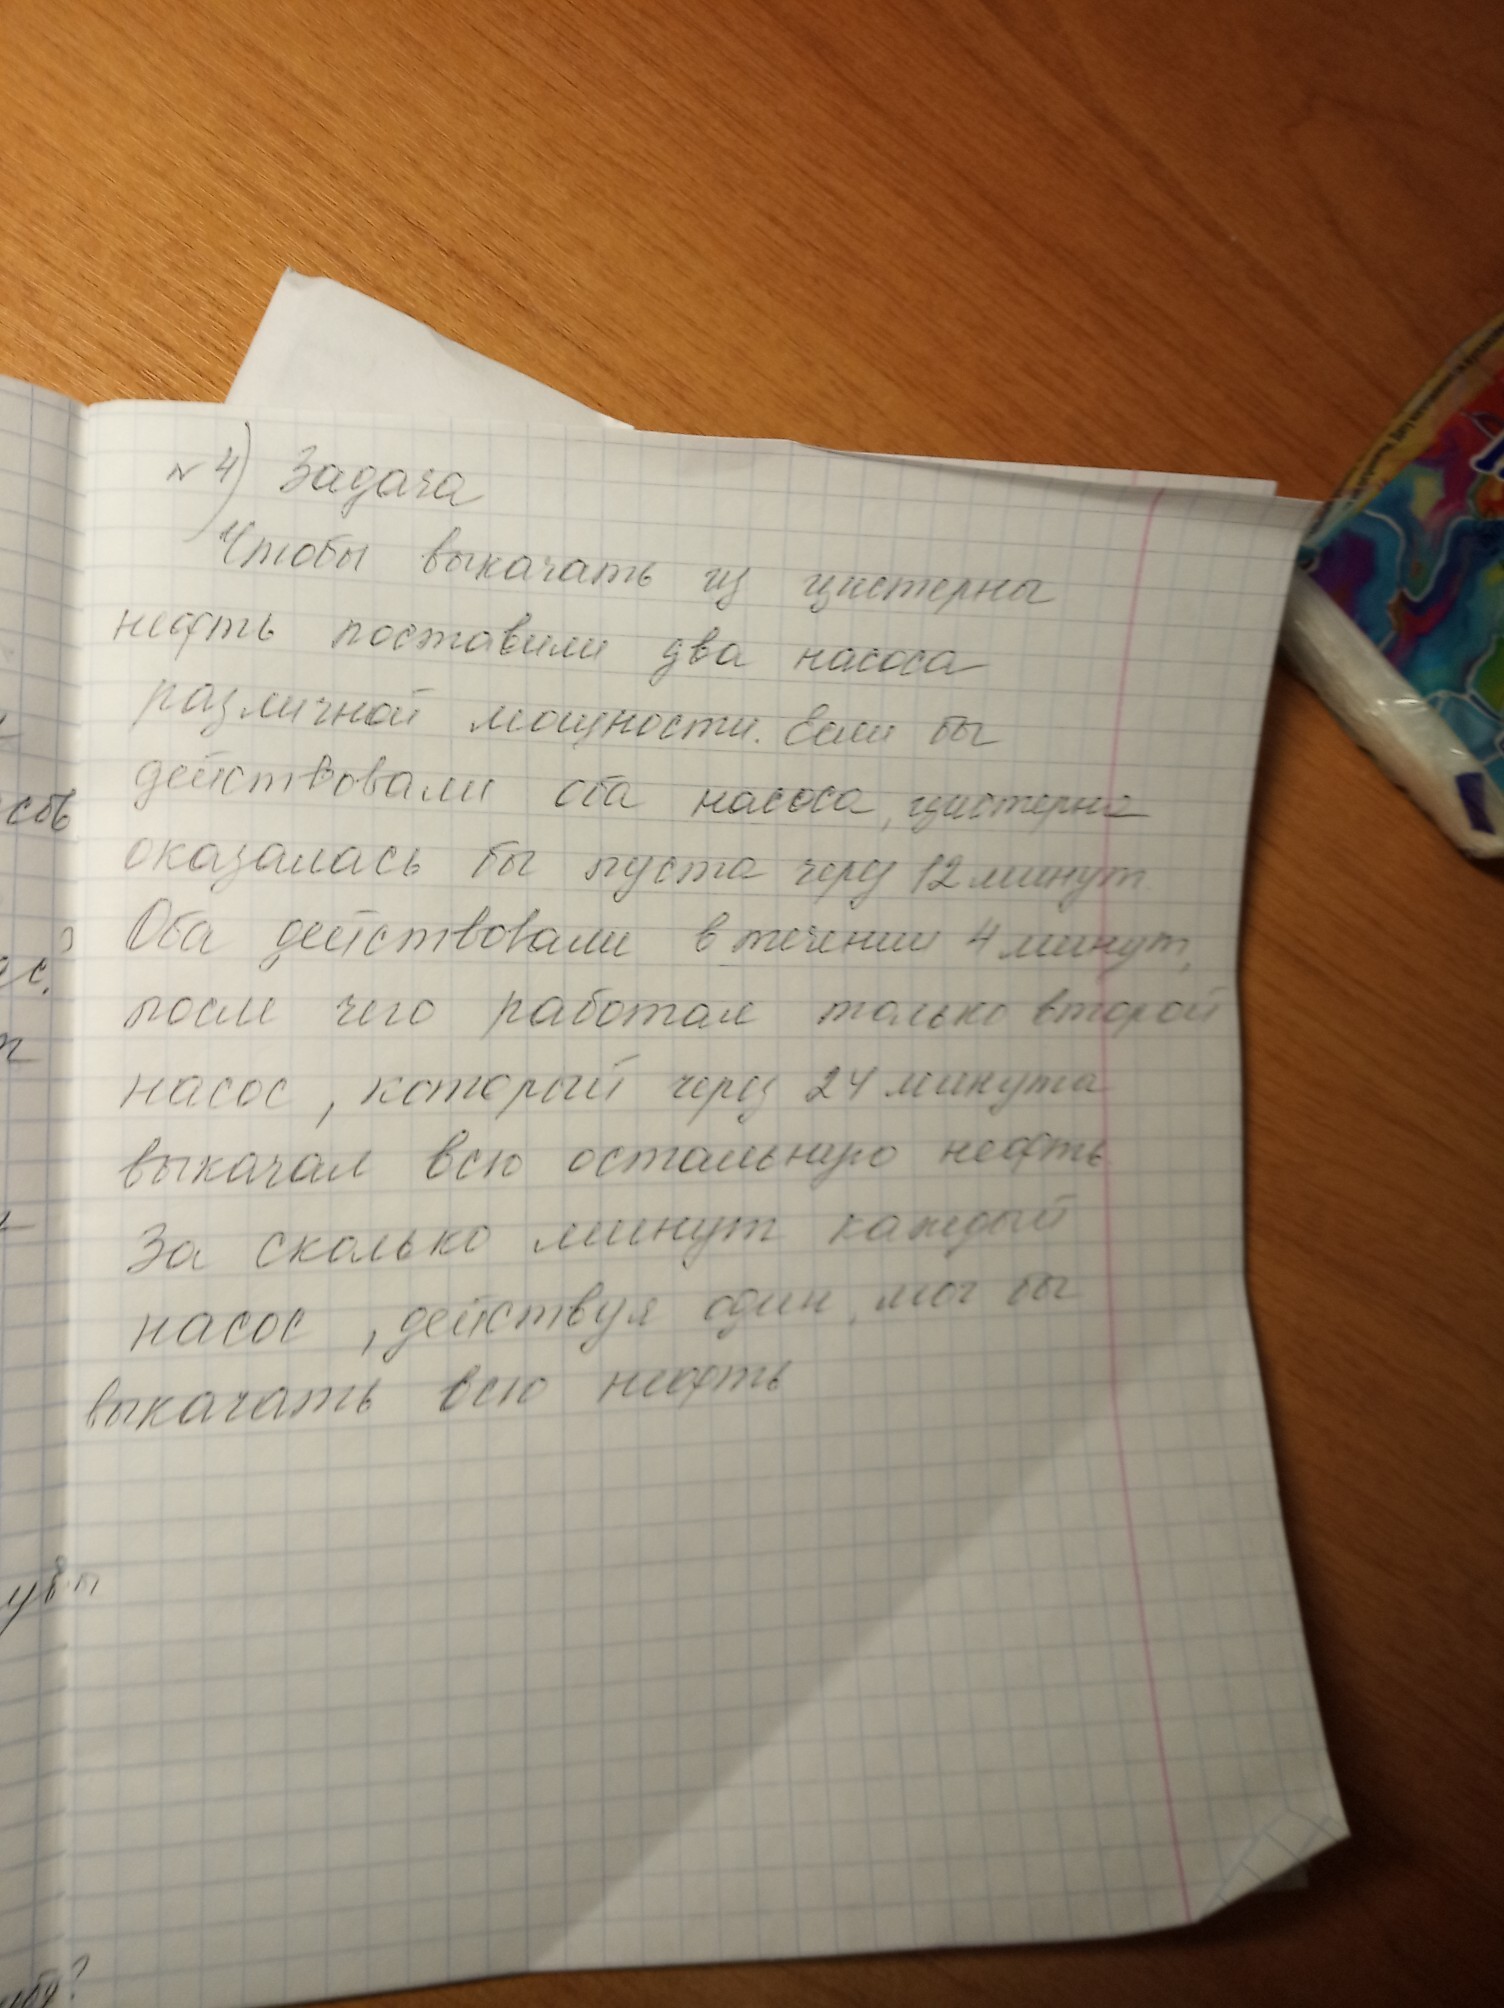 № 4) Задача
Чтобы выкачать из цистерны
нефть поставили два насоса
различной мощности. Если бы
действовали оба насоса, цистерна
оказалась бы пуста через 12 минут.
Оба действовали в течении 4 минут,
после чего работал только второй
насос, который через 24 минута
выкачал всю остальную нефть.
За сколько минут каждый
насос, действуя один, мог бы
выкачать всю нефть